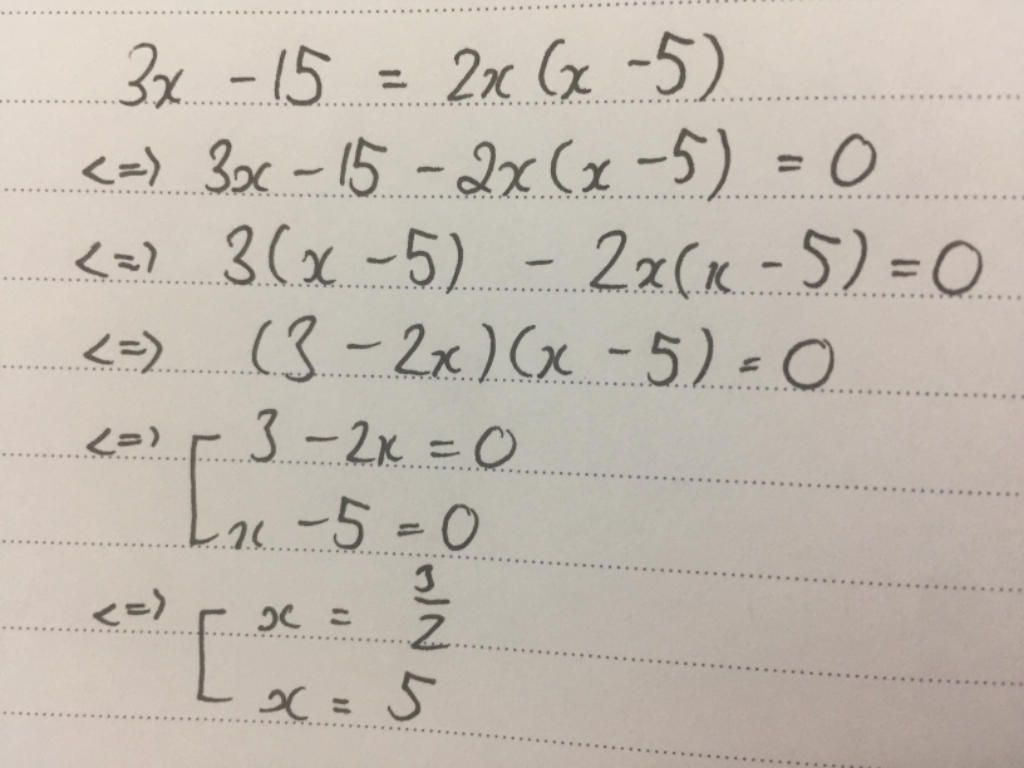 3x - 15 = 2x(x - 5)
<=> 3x - 15 - 2x(x - 5) = 0
<=> 3(x - 5) - 2x(x - 5) = 0
<=> (3 - 2x)(x - 5) = 0
<=> [ 3 - 2x = 0
x - 5 = 0
<=> [ x = 3/2
x = 5